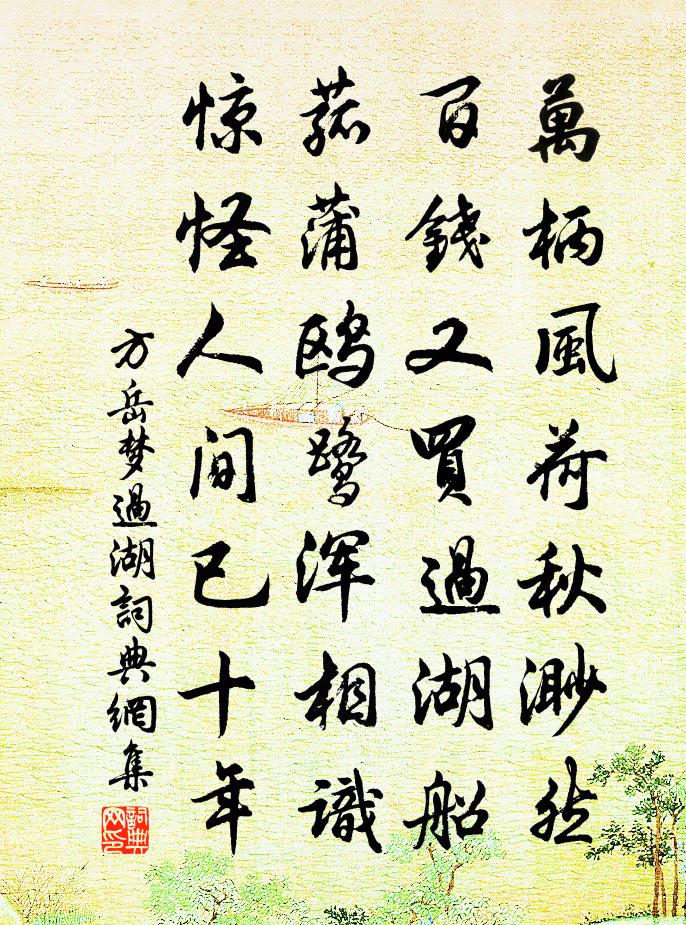 萬柄風荷秋渺然
百錢又買過湖船
菰蒲鸥鹭浑相識
惊怪人间已十年
方岳梦過湖詞典網集
詞典網印